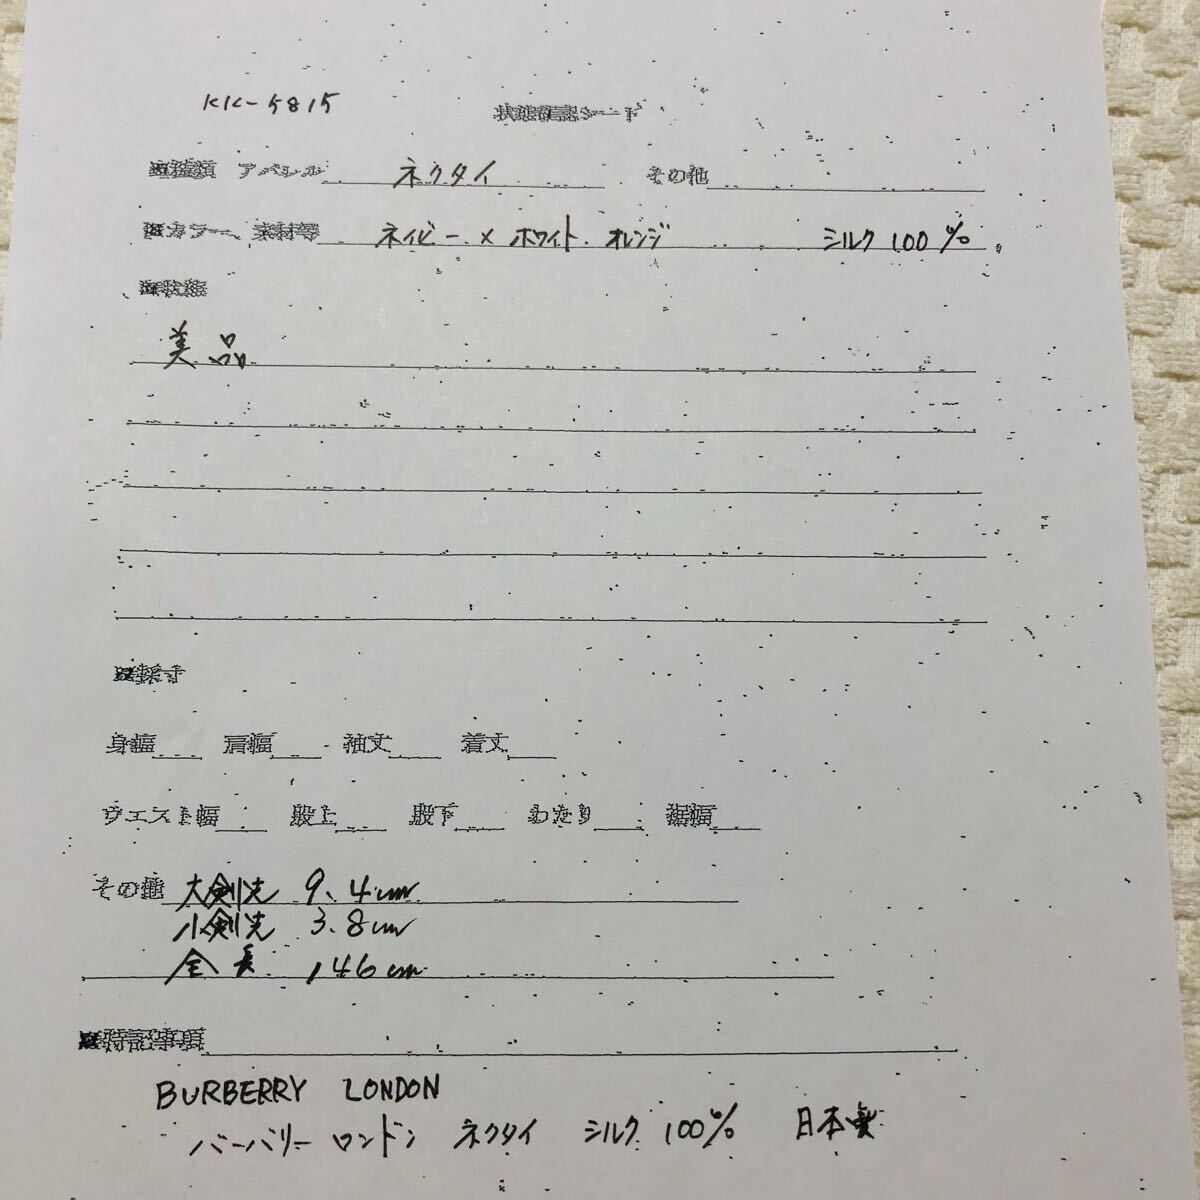 KK-5815
状態確認シート
■種類 アパレル ネクタイ その他
■カラー、素材等 ネイビー × ホワイト. オレンジ シルク 100%
■状態
美品
■採寸
身幅 肩幅 袖丈 着丈
ウエスト幅 股上 股下 わたり 裾幅
その他 大剣先 9.4cm
小剣先 3.8cm
全長 146cm
■特記事項
BURBERRY LONDON
バーバリー ロンドン ネクタイ シルク 100% 日本製